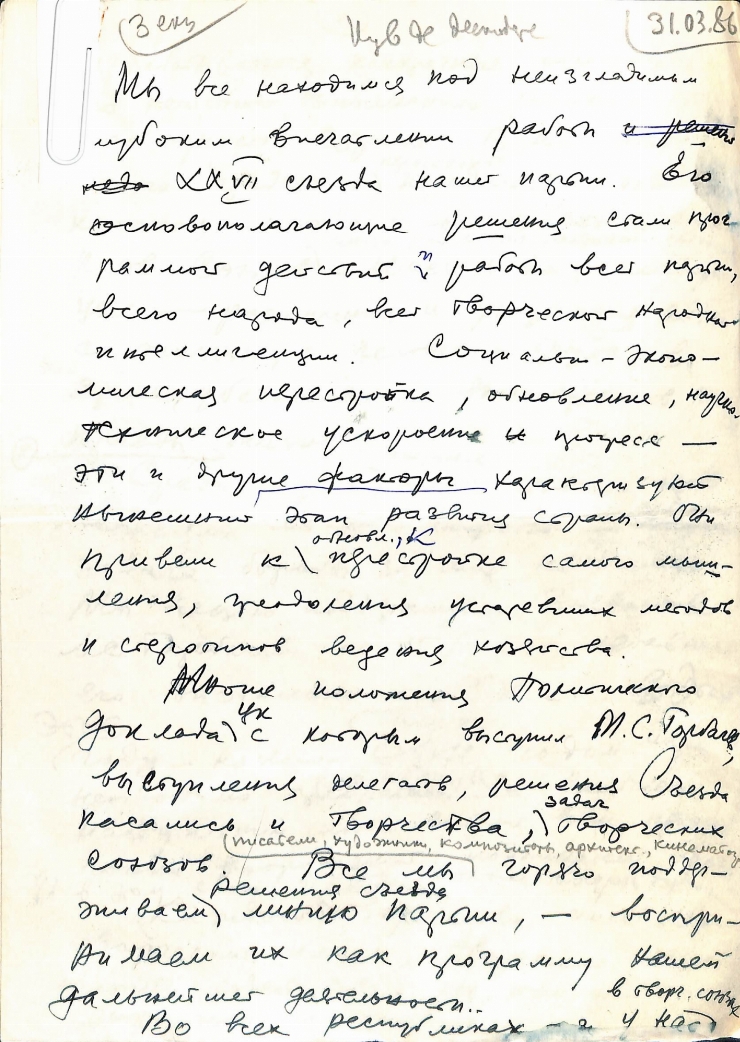 31.03.86
Мы все находимся под неизгладимым
глубоким впечатлением работы и решен
XXVII съезда нашей партии. Его
основополагающие решения стали прог-
раммой действий и работы всей партии,
всего народа, всей творческой народной
интеллигенции. Социально-эконо-
мическая перестройка, обновление, научно-
техническое ускорение и прогресс —
эти и другие факторы характеризуют
нынешний этап развития страны. Они
обновл., к
привели к перестройке самого мыш-
ления, преодоления устаревших методов
и стереотипов ведения хозяйства.
Многие положения Политического
ЦК
доклада с которым выступил М.С. Горбачев,
выступления делегатов, решения Съезда
задач
касались и творчества, творческих
писатели, художники, композиторы, архитект., кинематог
союзов. Все мы горячо поддер-
решения съезда
живаем линию партии, — воспри-
нимаем их как программу нашей
дальнейшей деятельности..
в творч. союзах
Во всех республиках – и у нас